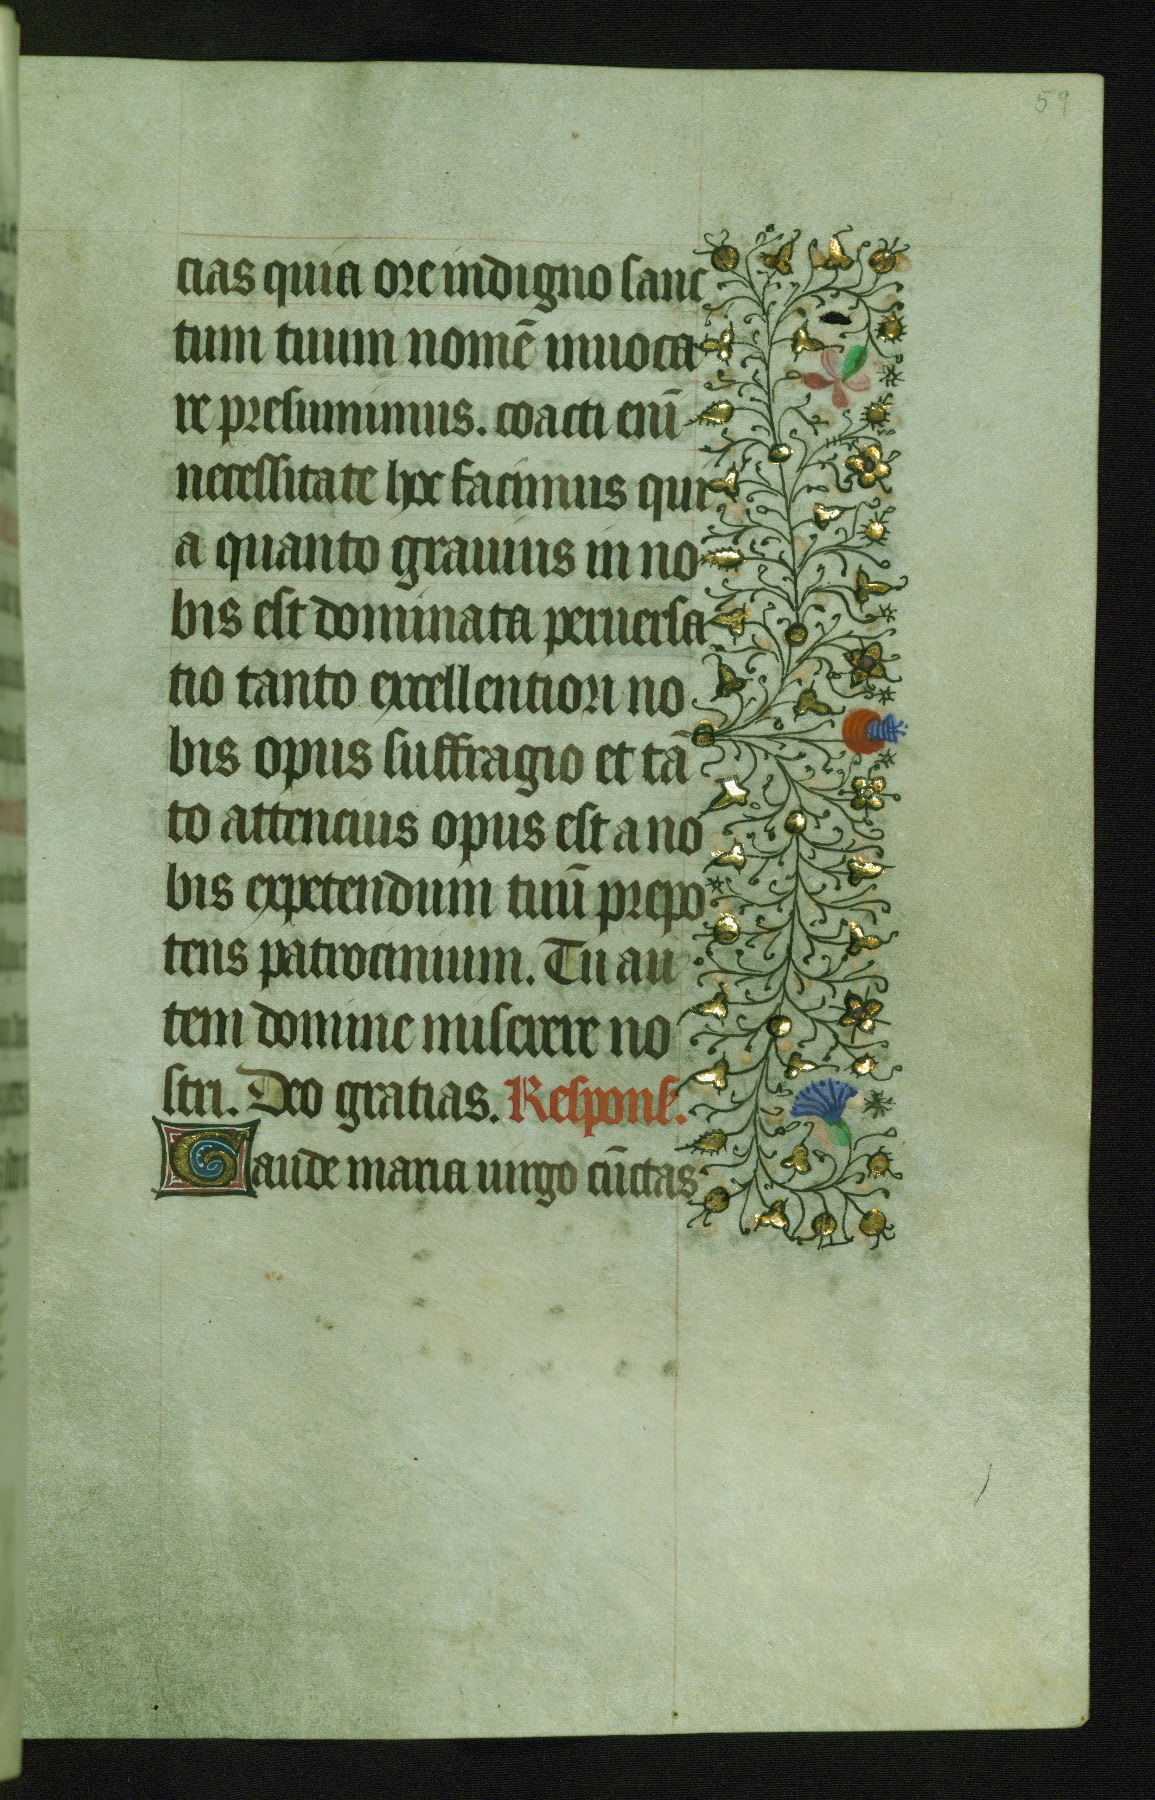 59
cias quia ore indigno sanc
tum tuum nomē inuoca
re presumimus. coacti eni̅
necessitate hoc facimus qui
a quanto grauius in no
bis est dominata peruersa
tio tanto excellentiori no
bis opus suffragio et tā
to attencius opus est a no
bis expetendum tuū prepo
tens patrocinium. Tu au
tem domine miserere no
stri. Deo gratias. Respons.
Gaude maria uirgo cūctas